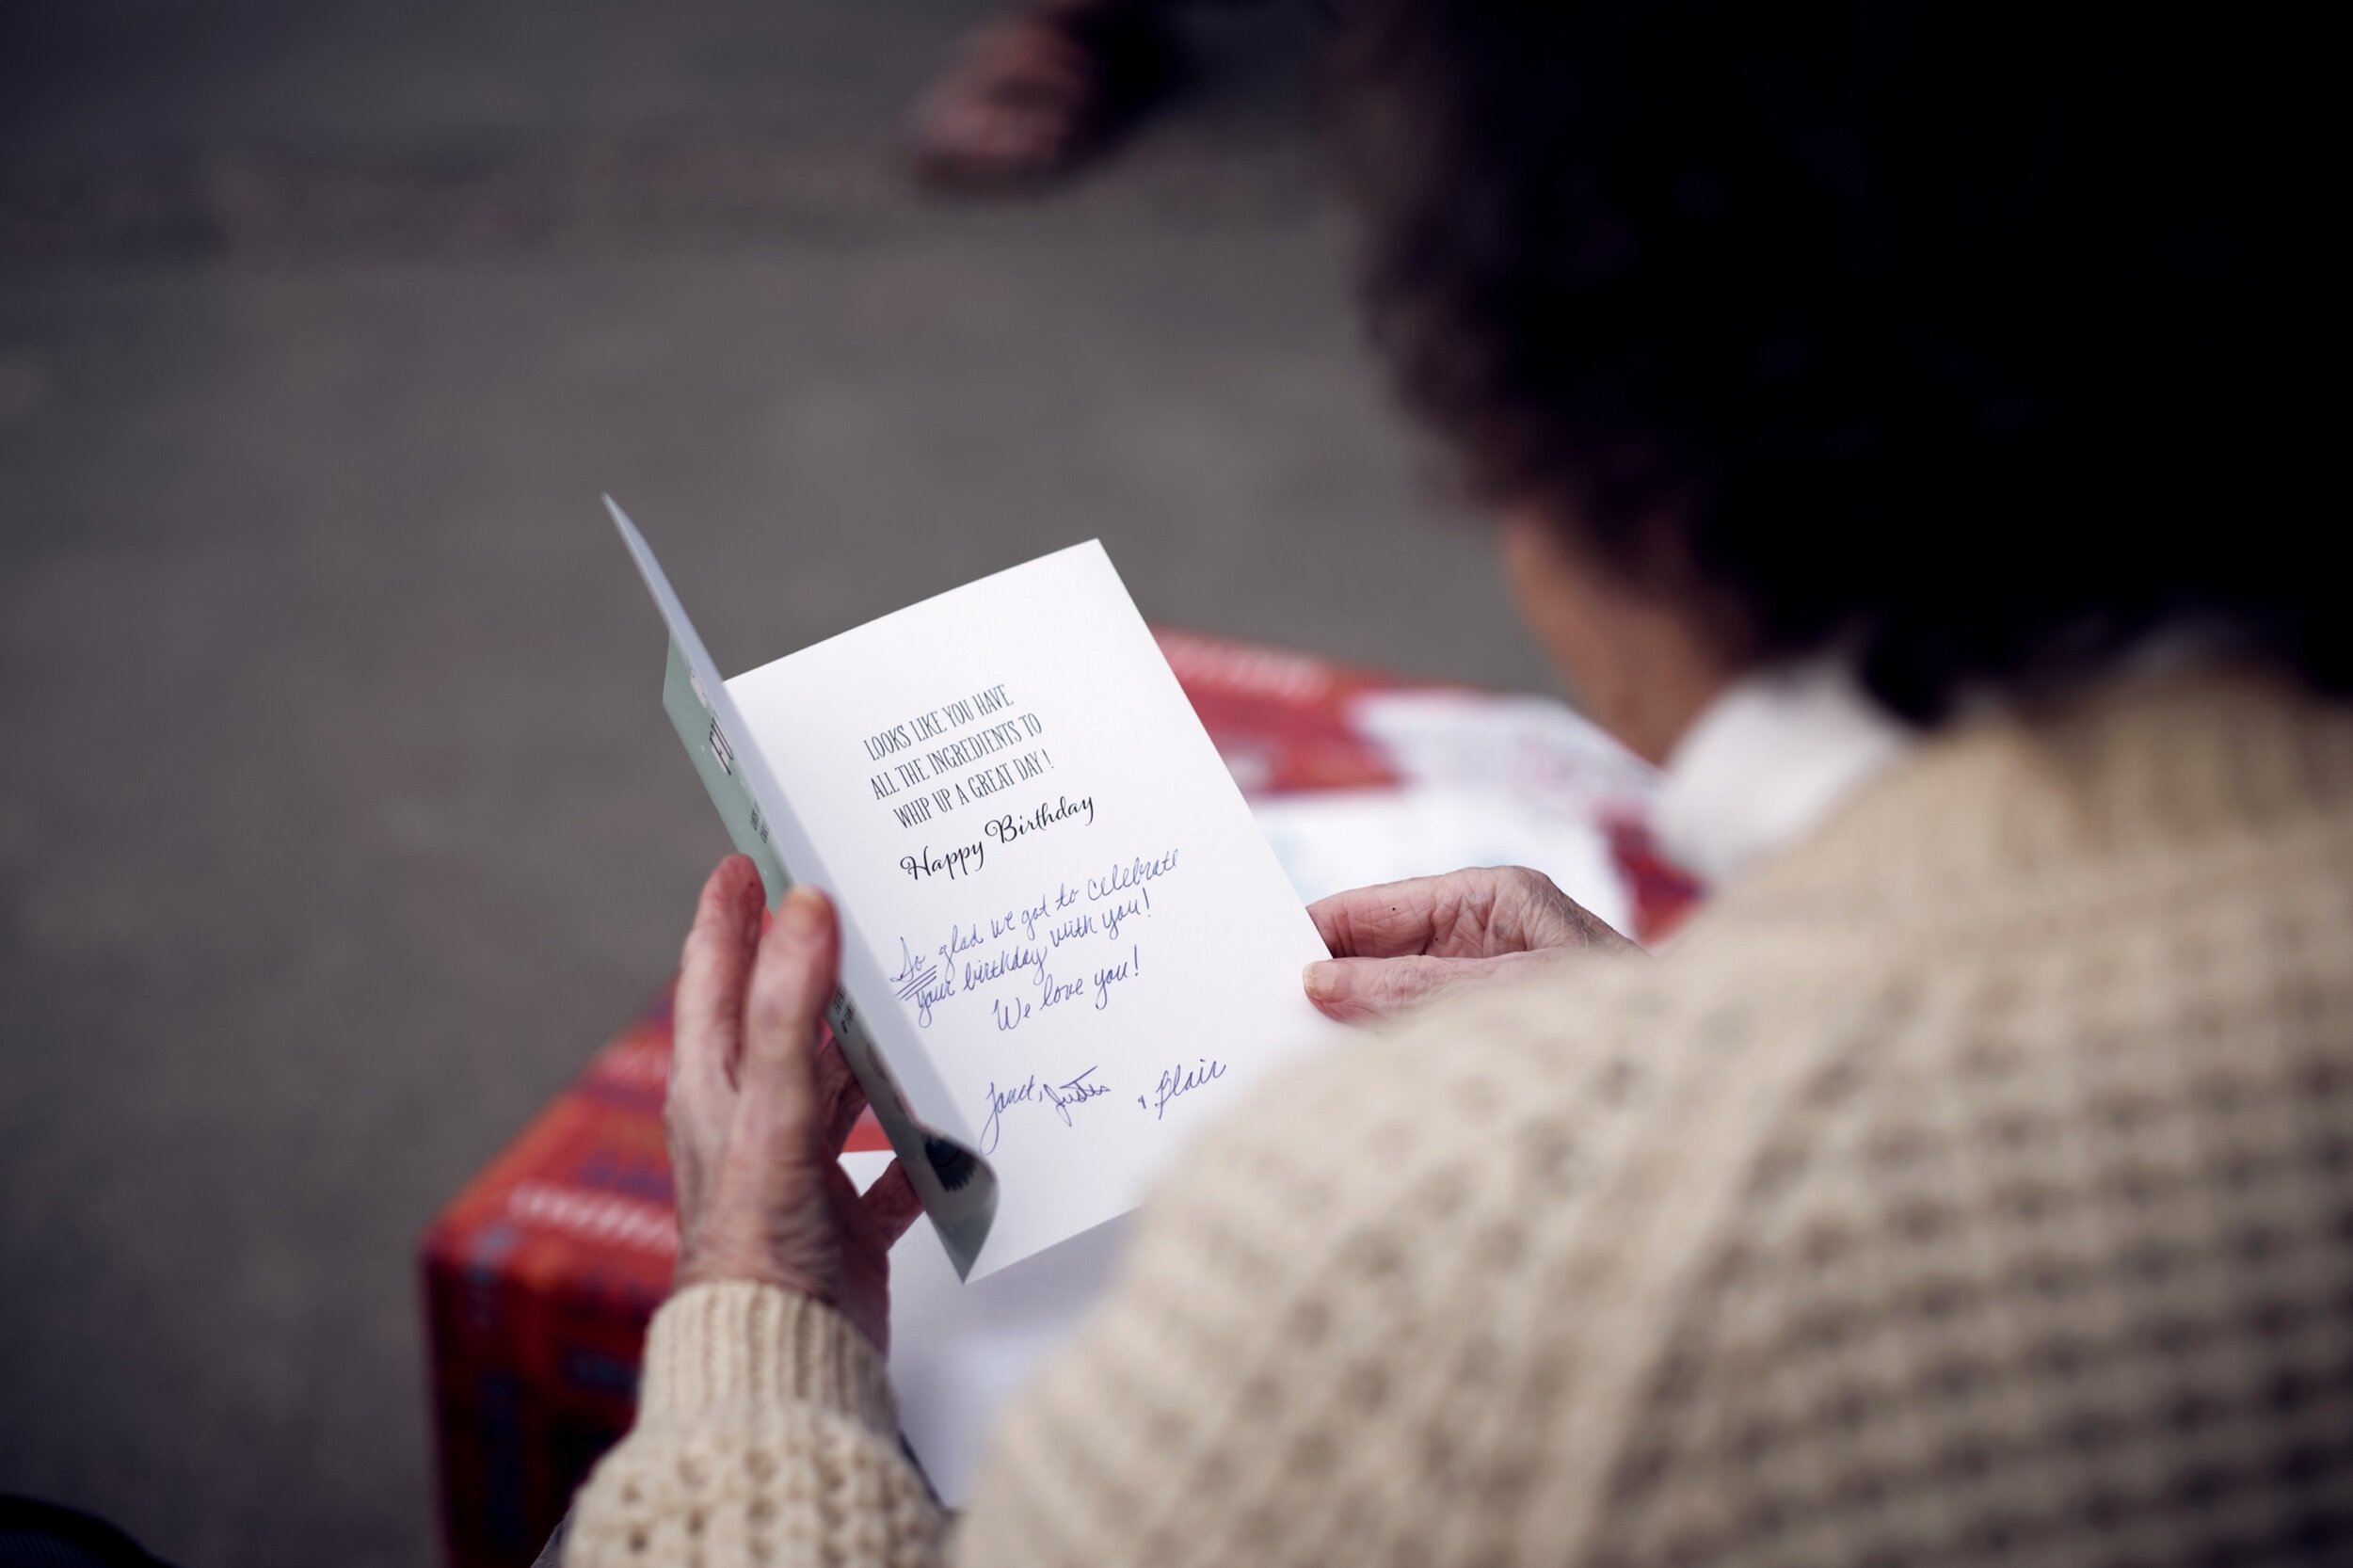 LOOKS LIKE YOU HAVE
ALL THE INGREDIENTS TO
WHIP UP A GREAT DAY!
Happy Birthday
So glad we got to celebrate
your birthday with you!
We love you!
Janet, Justin & Blair